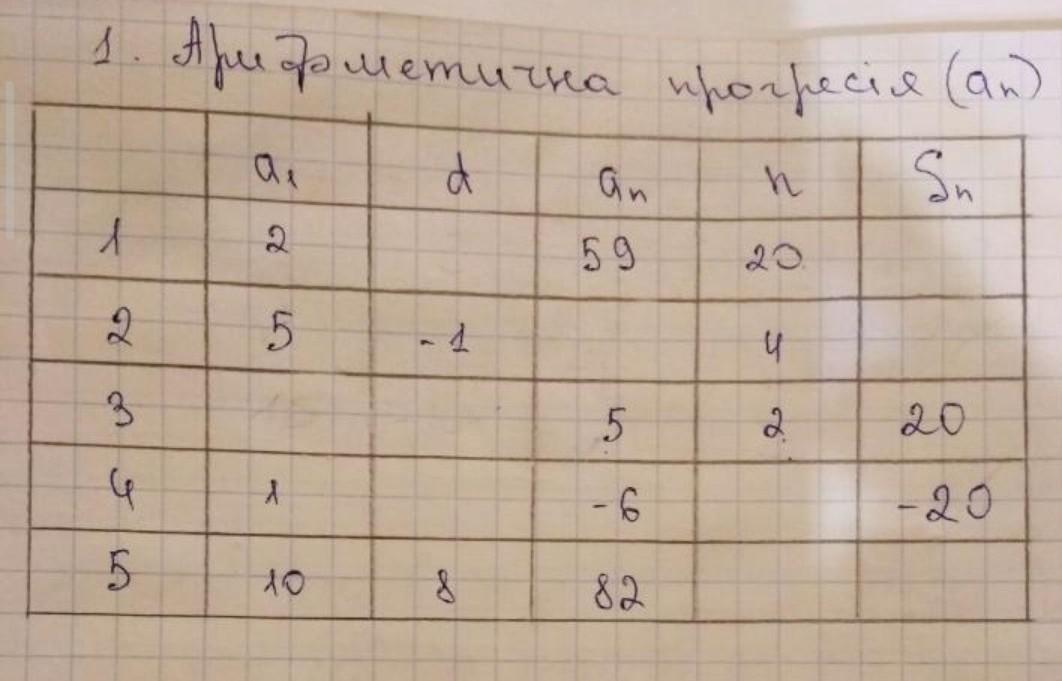 1. Арифметична прогресія (aₙ)
a₁ d aₙ n Sₙ
1 2 59 20
2 5 -1 4
3 5 2 20
4 1 -6 -20
5 10 8 82